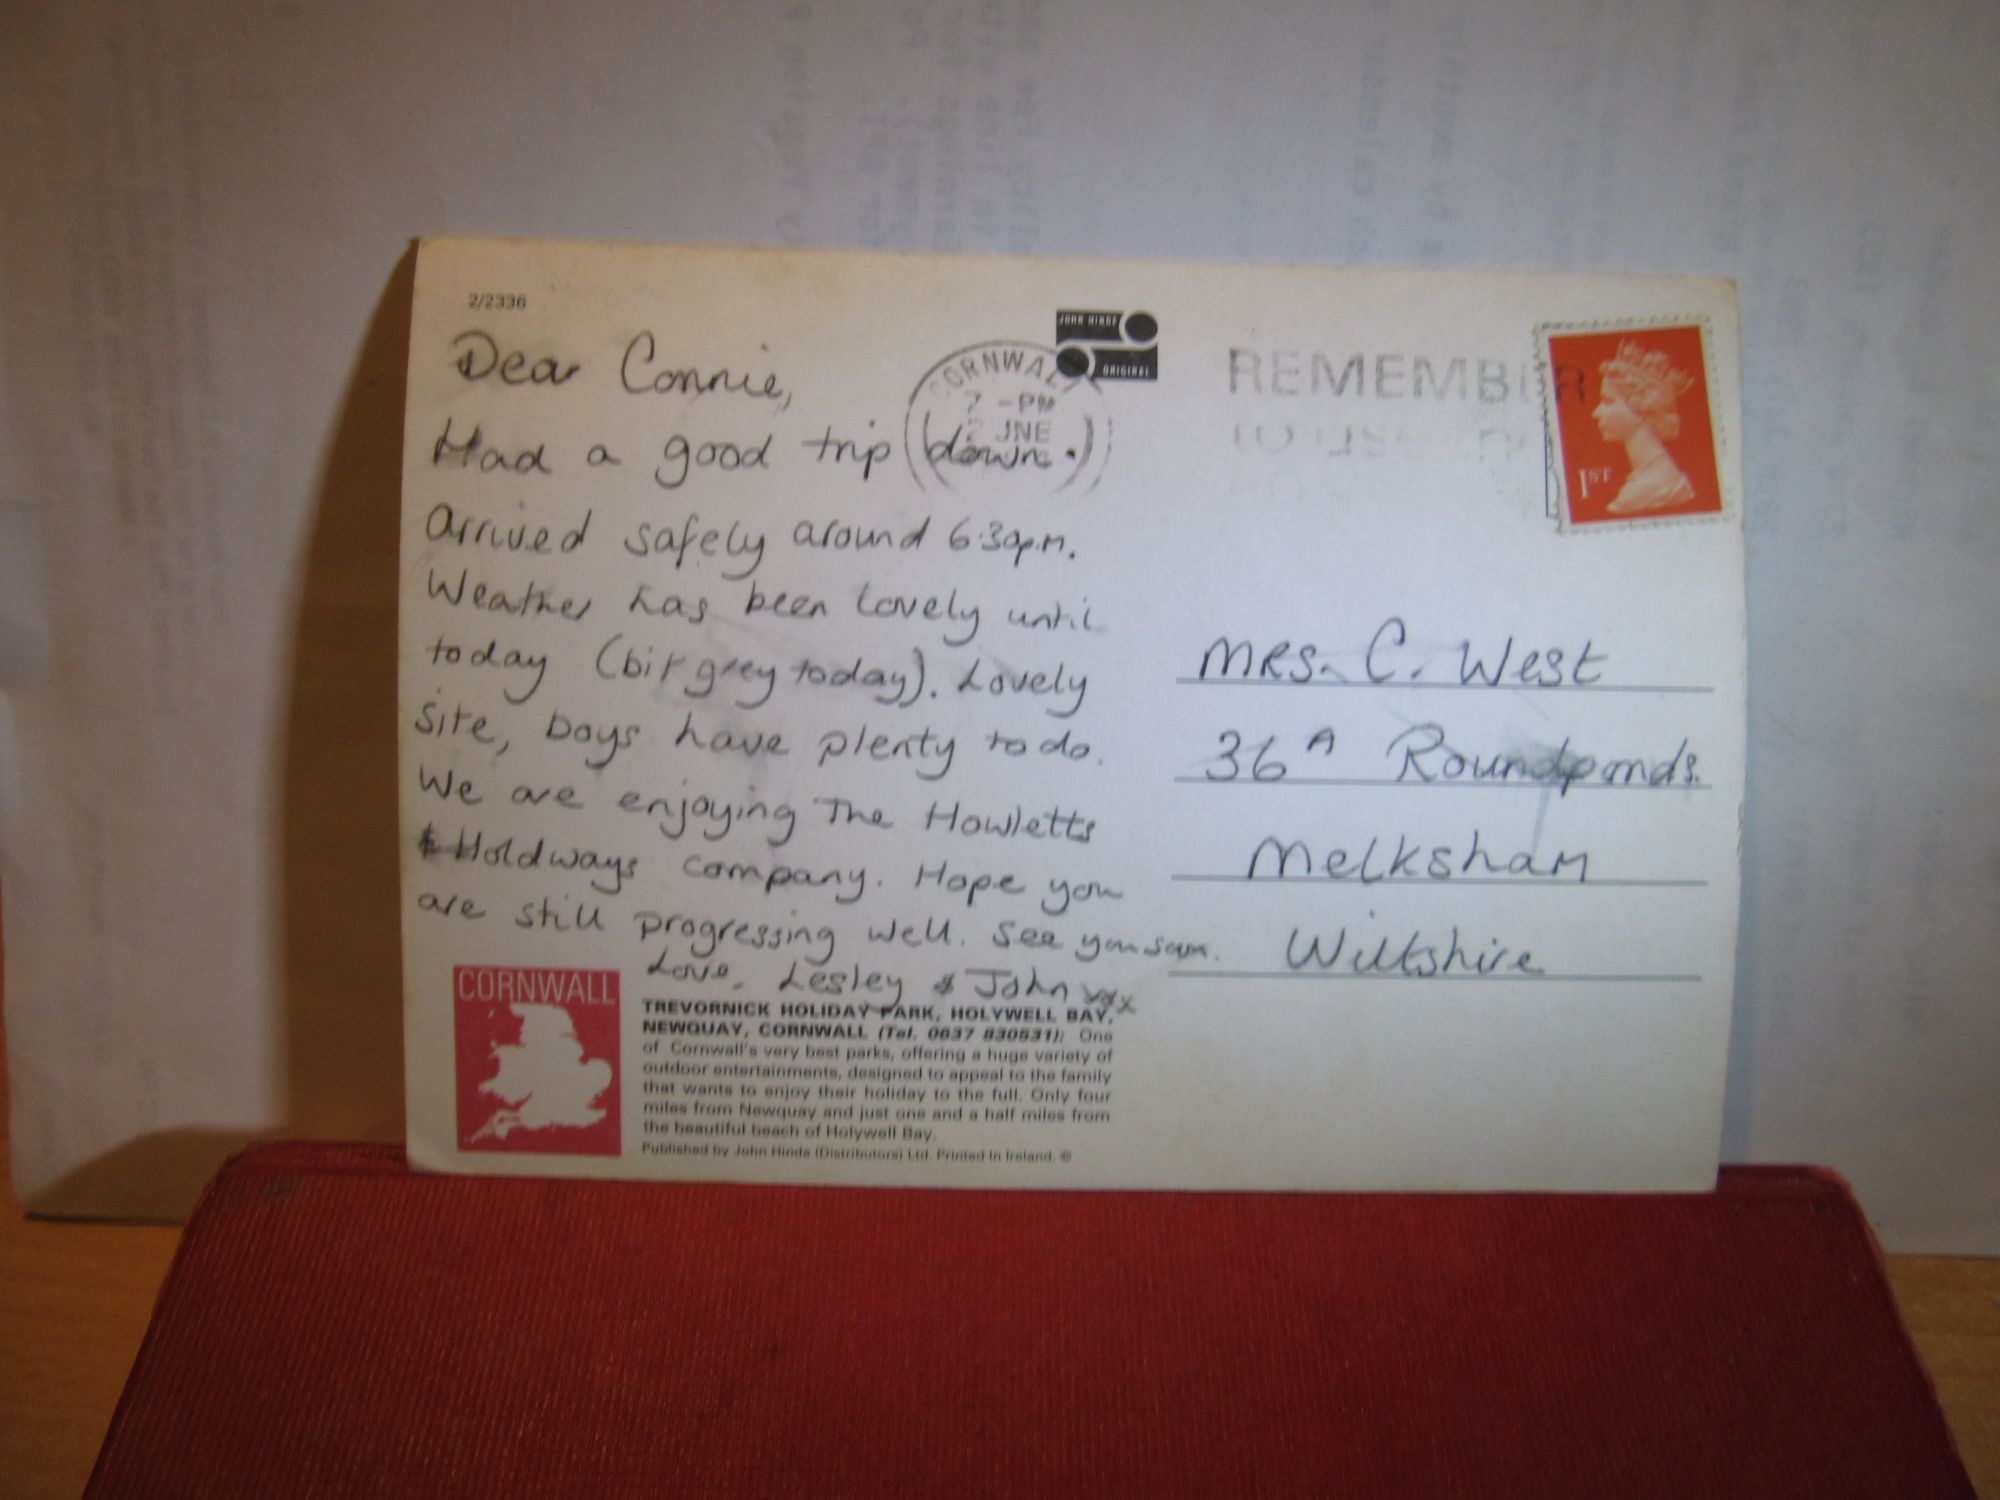 2/2336
JOHN HINDE
ORIGINAL
CORNWALL
7 -PM
JNE
REMEMBER
1ST
Dear Connie,
Had a good trip down.
Arrived safely around 6.30p.m.
Weather has been lovely until
today (bit grey today). Lovely
site, boys have plenty to do.
We are enjoying The Howletts
& Holdways company. Hope you
are still progressing well. See you soon.
Love, Lesley & John xxx
MRS. C. West
36A Roundponds.
Melksham
Wiltshire
CORNWALL
TREVORNICK HOLIDAY PARK, HOLYWELL BAY,
NEWQUAY, CORNWALL (Tel. 0637 830531): One
of Cornwall's very best parks, offering a huge variety of
outdoor entertainments, designed to appeal to the family
that wants to enjoy their holiday to the full. Only four
miles from Newquay and just one and a half miles from
the beautiful beach of Holywell Bay.
Published by John Hinde (Distributors) Ltd. Printed in Ireland. ©